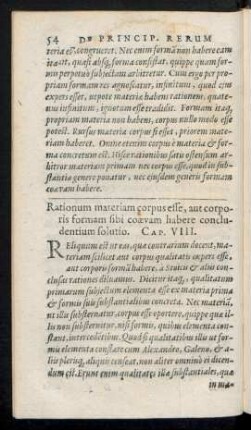 54 DE PRINCIP. RERUM
teria esset, congrueret. Nec enim formã non habere cam
ita sit, quasi absq; forma consistat, quippe quam for-
mis perpetuò subjectam arbitretur. Cum ergo per pro-
priam formam res agnoscatur, infinitum, quod ejus
expers esset, utpote materia habens rationem, quate-
nus infinitum, ignotum esse tradidit. Formam itaq;
propriam materia non habens, corpus nullo modo esse
potest. Rursus materia corpus si esset, priorem materi-
am haberet. Omne etenim corpus è materia & for-
ma concretum est. Hisce rationibus satis ostensum ar-
bitror materiam primam nec corpus esse, quod in sub-
stantiæ genere ponatur, nec ejusdem generis formam
coævam habere.
Rationum materiam corpus esse, aut corpo-
ris formam sibi coævam habere conclu-
dentium solutio. CAP. VIII.
RELiquum est ut eas, quæ contrarium docent, ma-
teriam scilicet aut corpus qualitatis expers esse,
aut corpori formã habere, à Stoicis & aliis con-
clusas rationes diluamus. Dicitur itaq; qualitatum
primum subjectum elementa esse ex materia prima
& formis suis substantialibus concreta. Nec materiã,
ut illis substernatur, corpus esse oportere, quippe quæ il-
lis non substernitur, nisi formis, quibus elementa con-
stant, intercedentibus. Quod si qualitatibus illis ut for-
mis elementa constare cum Alexandro, Galeno, & a-
liis plerisq;, aliquis censeat, non aliter omnino ei dicen-
dum est. Erunt enim qualitates illæ substantiales, quæ
in ma-